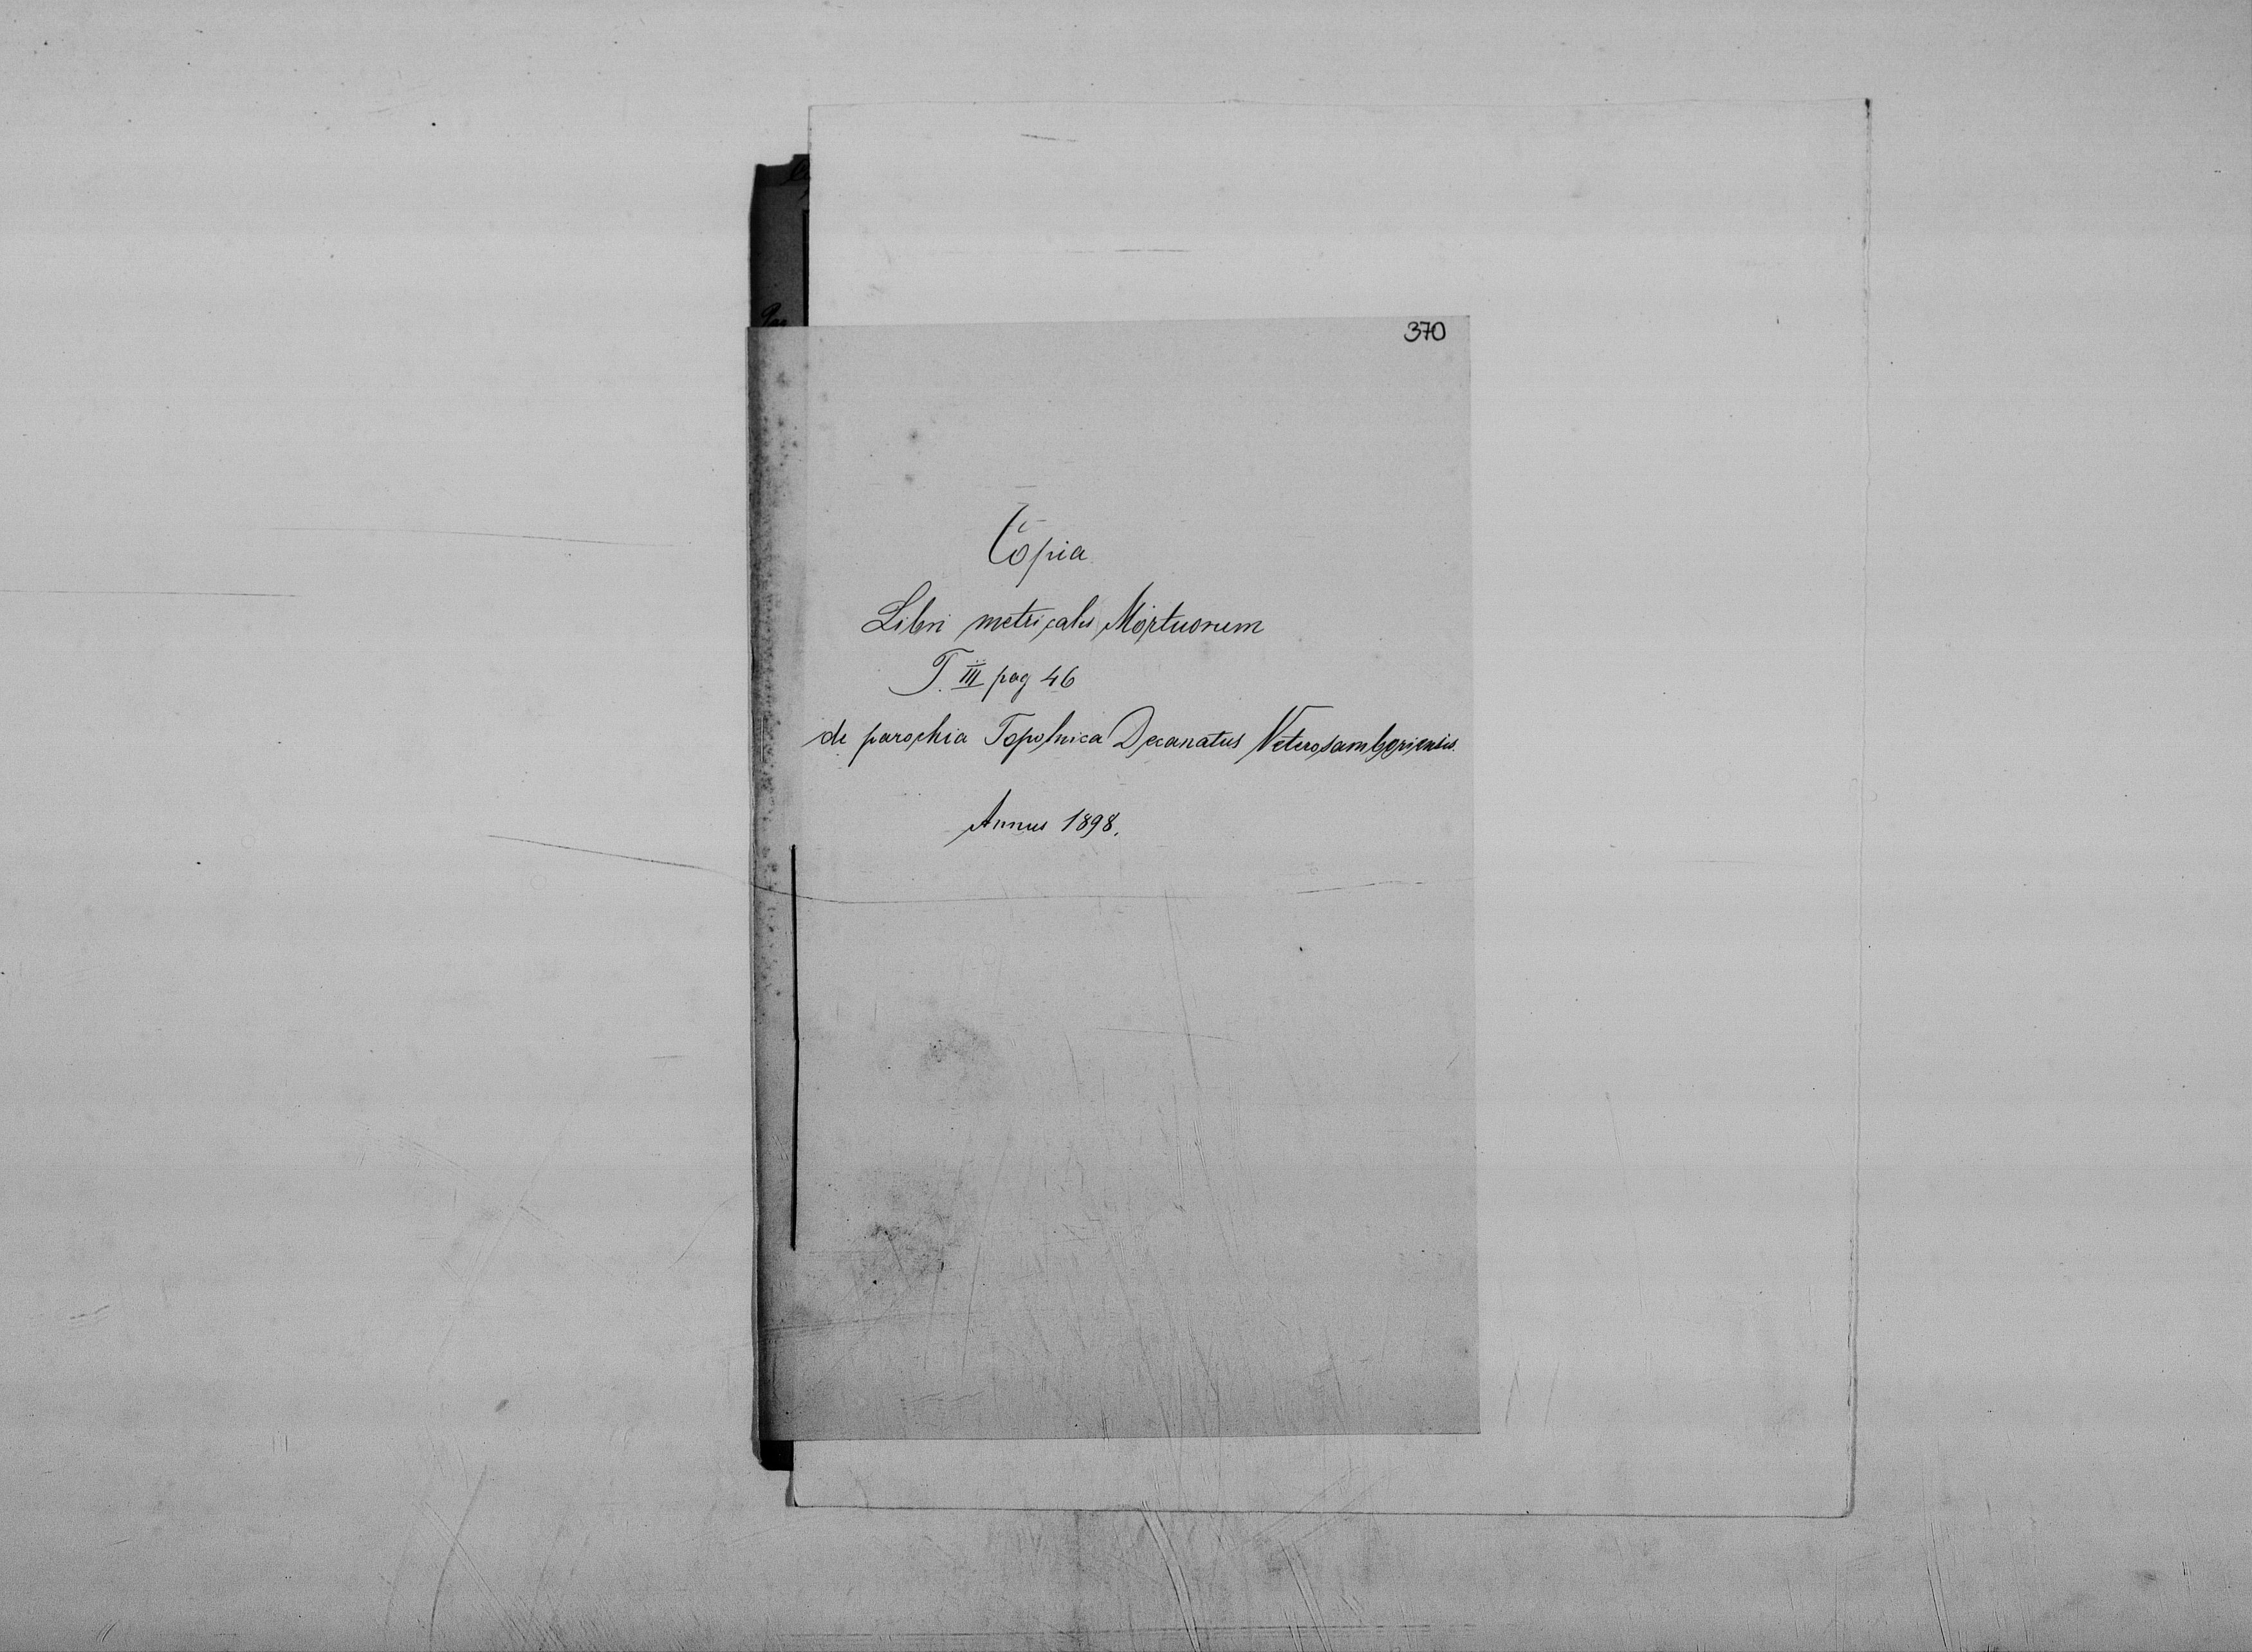 370
Copia
Libri metricalis Mortuorum
T. III pag 46
de parochia Topolnica Decanatus Veterosamboriensis.
Annus 1898.